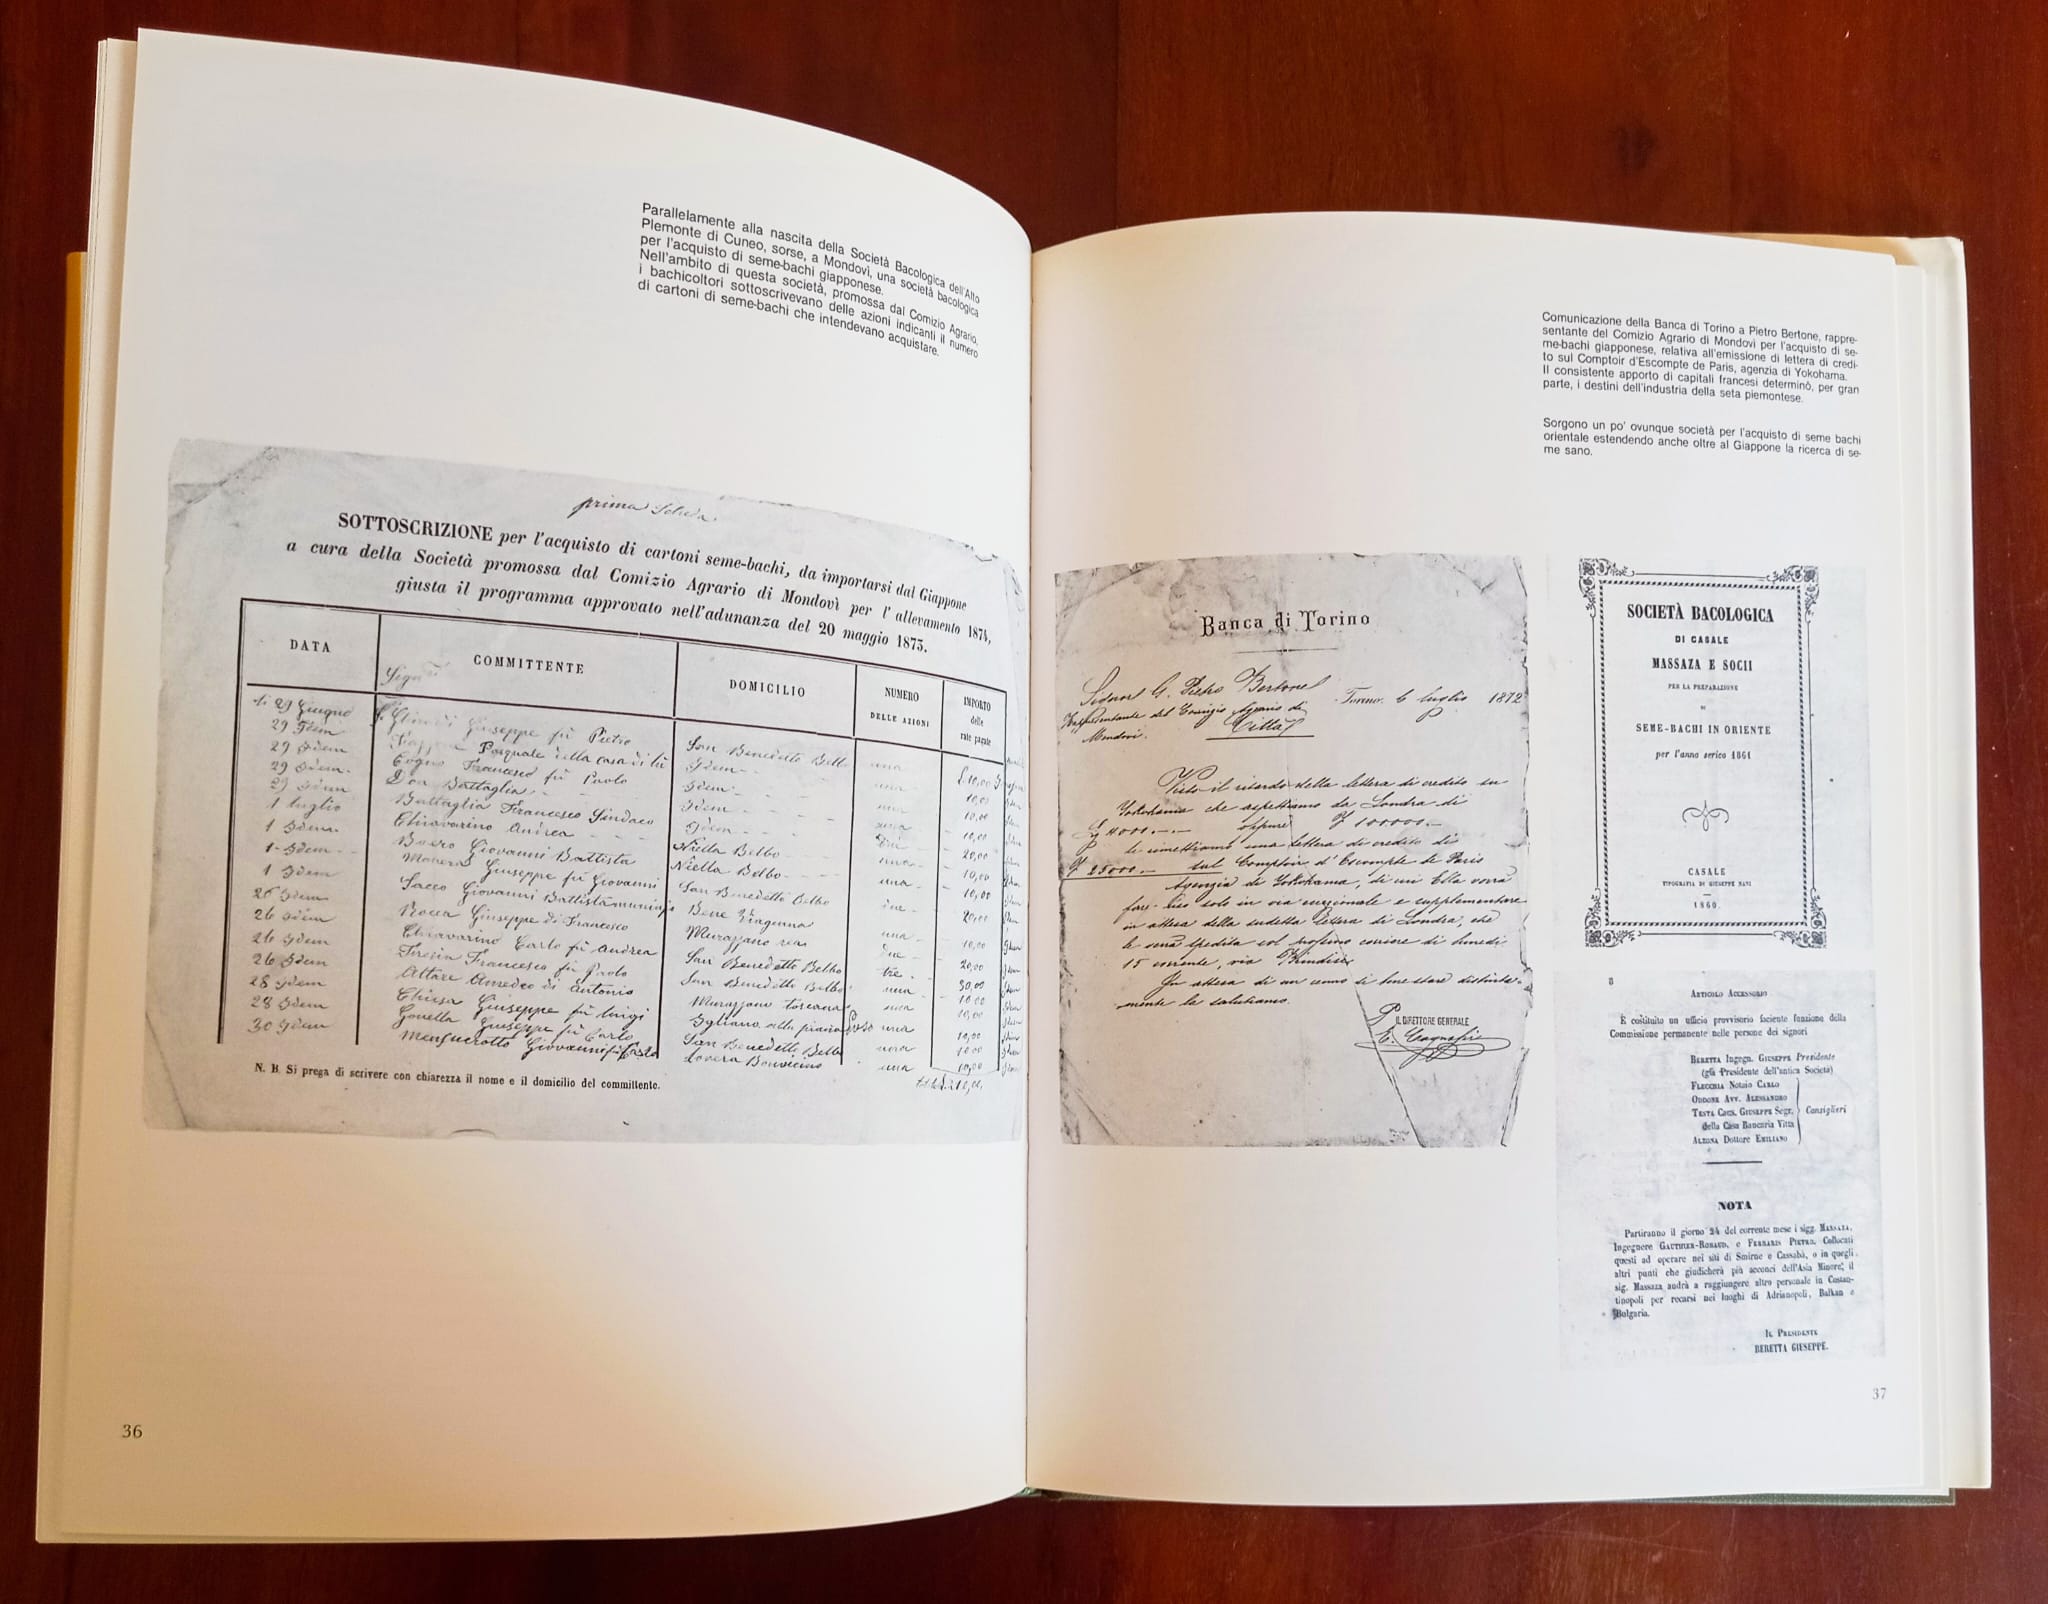 Parallelamente alla nascita della Società Bacologica dell'Alto
Piemonte di Cuneo, sorse, a Mondovì, una società bacologica
per l'acquisto di seme-bachi giapponese.
Nell'ambito di questa società, promossa dal Comizio Agrario,
i bachicoltori sottoscrivevano delle azioni indicanti il numero
di cartoni di seme-bachi che intendevano acquistare.
prima Scheda
SOTTOSCRIZIONE per l'acquisto di cartoni seme-bachi, da importarsi dal Giappone
a cura della Società promossa dal Comizio Agrario di Mondovì per l'allevamento 1874,
giusta il programma approvato nell'adunanza del 20 maggio 1873.
DATA COMMITTENTE DOMICILIO NUMERO DELLE AZIONI IMPORTO delle rate pagate
29 Giugno Giuseppe fù Pietro San Benedetto Belbo una 10,00
29 Idem Pasquale della casa di Idem una 10,00
29 Idem Cogno Francesco fù Paolo Idem una 10,00
29 Idem Don Battaglia Idem una 10,00
29 Idem Battaglia Francesco Sindaco Idem due 20,00
1 luglio Chiavarino Andrea Niella Belbo una 10,00
1 Idem Boero Giovanni Battista Niella Belbo una 10,00
1 Idem Giuseppe fù Giovanni San Benedetto Belbo due 20,00
1 Idem Sacco Giovanni Battista Bene Vagienna una 10,00
26 Idem Rocca Giuseppe di Francesco Murazzano due 20,00
26 Idem Chiavarino Carlo fù Andrea San Benedetto Belbo tre 30,00
26 Idem Francesco fù Paolo San Benedetto Belbo una 10,00
26 Idem Amedeo di Antonio Murazzano una 10,00
28 Idem Chiesa Giuseppe fù Luigi Igliano una 10,00
28 Idem Gonella Giuseppe fù Carlo San Benedetto Belbo una 10,00
30 Idem Giovanni fù Carlo una 10,00
N. B. Si prega di scrivere con chiarezza il nome e il domicilio del committente.
36
Comunicazione della Banca di Torino a Pietro Bertone, rappre-
sentante del Comizio Agrario di Mondovì per l'acquisto di se-
me-bachi giapponese, relativa all'emissione di lettera di credi-
to sul Comptoir d'Escompte de Paris, agenzia di Yokohama.
Il consistente apporto di capitali francesi determinò, per gran
parte, i destini dell'industria della seta piemontese.
Sorgono un po' ovunque società per l'acquisto di seme bachi
orientale estendendo anche oltre al Giappone la ricerca di se-
me sano.
Banca di Torino
Signor G. Pietro Bertone
Torino 6 luglio 1872
Rappresentante del Comizio Agrario di
Mondovì. Città
Visto il ritardo della lettera di credito su
Yokohama che aspettiamo da Londra di
£ 4000.— oppure F 100000.—
le rimettiamo una lettera di credito di
F 25000.— sul Comptoir d'Escompte de Paris
Agenzia di Yokohama, di cui Ella vorrà
far uso solo in via eccezionale e supplementare
in attesa della sudetta lettera di Londra, che
le verrà spedita col prossimo corriere di lunedì
15 corrente, via Brindisi
In attesa di un cenno di benestare distinta-
mente la salutiamo.
IL DIRETTORE GENERALE
SOCIETÀ BACOLOGICA
DI CASALE
MASSAZA E SOCII
PER LA PREPARAZIONE
DI
SEME-BACHI IN ORIENTE
per l'anno serico 1861
CASALE
TIPOGRAFIA DI GIUSEPPE NANI
1860.
8
ARTICOLO ACCESSORIO
È costituito un ufficio provvisorio faciente funzione della
Commissione permanente nelle persone dei signori
BERETTA Ingegn. GIUSEPPE Presidente
(già Presidente dell'antica Società)
FLECCHIA Notaio CARLO
ODDONE AVV. ALESSANDRO
TESTA CAUS. GIUSEPPE Segr. Consiglieri
della Casa Bancaria Vitta
ALZONA Dottore EMILIANO
NOTA
Partiranno il giorno 24 del corrente mese i sigg. MASSAZA,
Ingegnere GAUTHIER-ROBAUD, e FERRARIS PIETRO. Collocati
questi ad operare nei siti di Smirne e Cassabà, o in quegli
altri punti che giudicherà più acconci dell'Asia Minore, il
sig. Massaza andrà a raggiungere altro personale in Costan-
tinopoli per recarsi nei luoghi di Adrianopoli, Balkan e
Bulgaria.
IL PRESIDENTE
BERETTA GIUSEPPE.
37